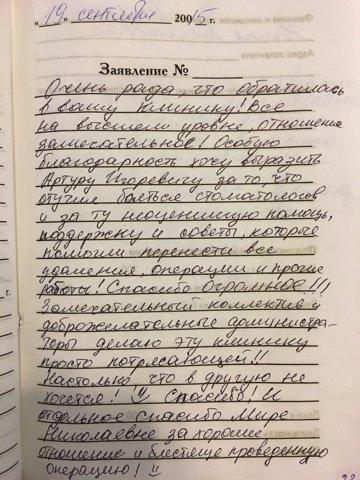 Фамилия и инициалы
"19" сентября 20015 г.
Адрес заявителя
Заявление №
Очень рада, что обратилась
в вашу клинику! Все
на высшем уровне, отношение
замечательное! Особую
благодарность хочу выразить
Артуру Игоревичу за то, что
отучил бояться стоматологов
и за ту неоценимую помощь,
поддержку и советы, которые
помогли перенести все
удаления, операции и прочие
работы! Спасибо Огромное!!!
Замечательный коллектив и
доброжелательные администра-
торы делают эту клинику
просто потрясающей!!
Настолько, что в другую не
хочется! Спасибо! И
отдельное спасибо Мире
Николаевне за хорошее
отношение и блестяще проведенную
операцию!
г.